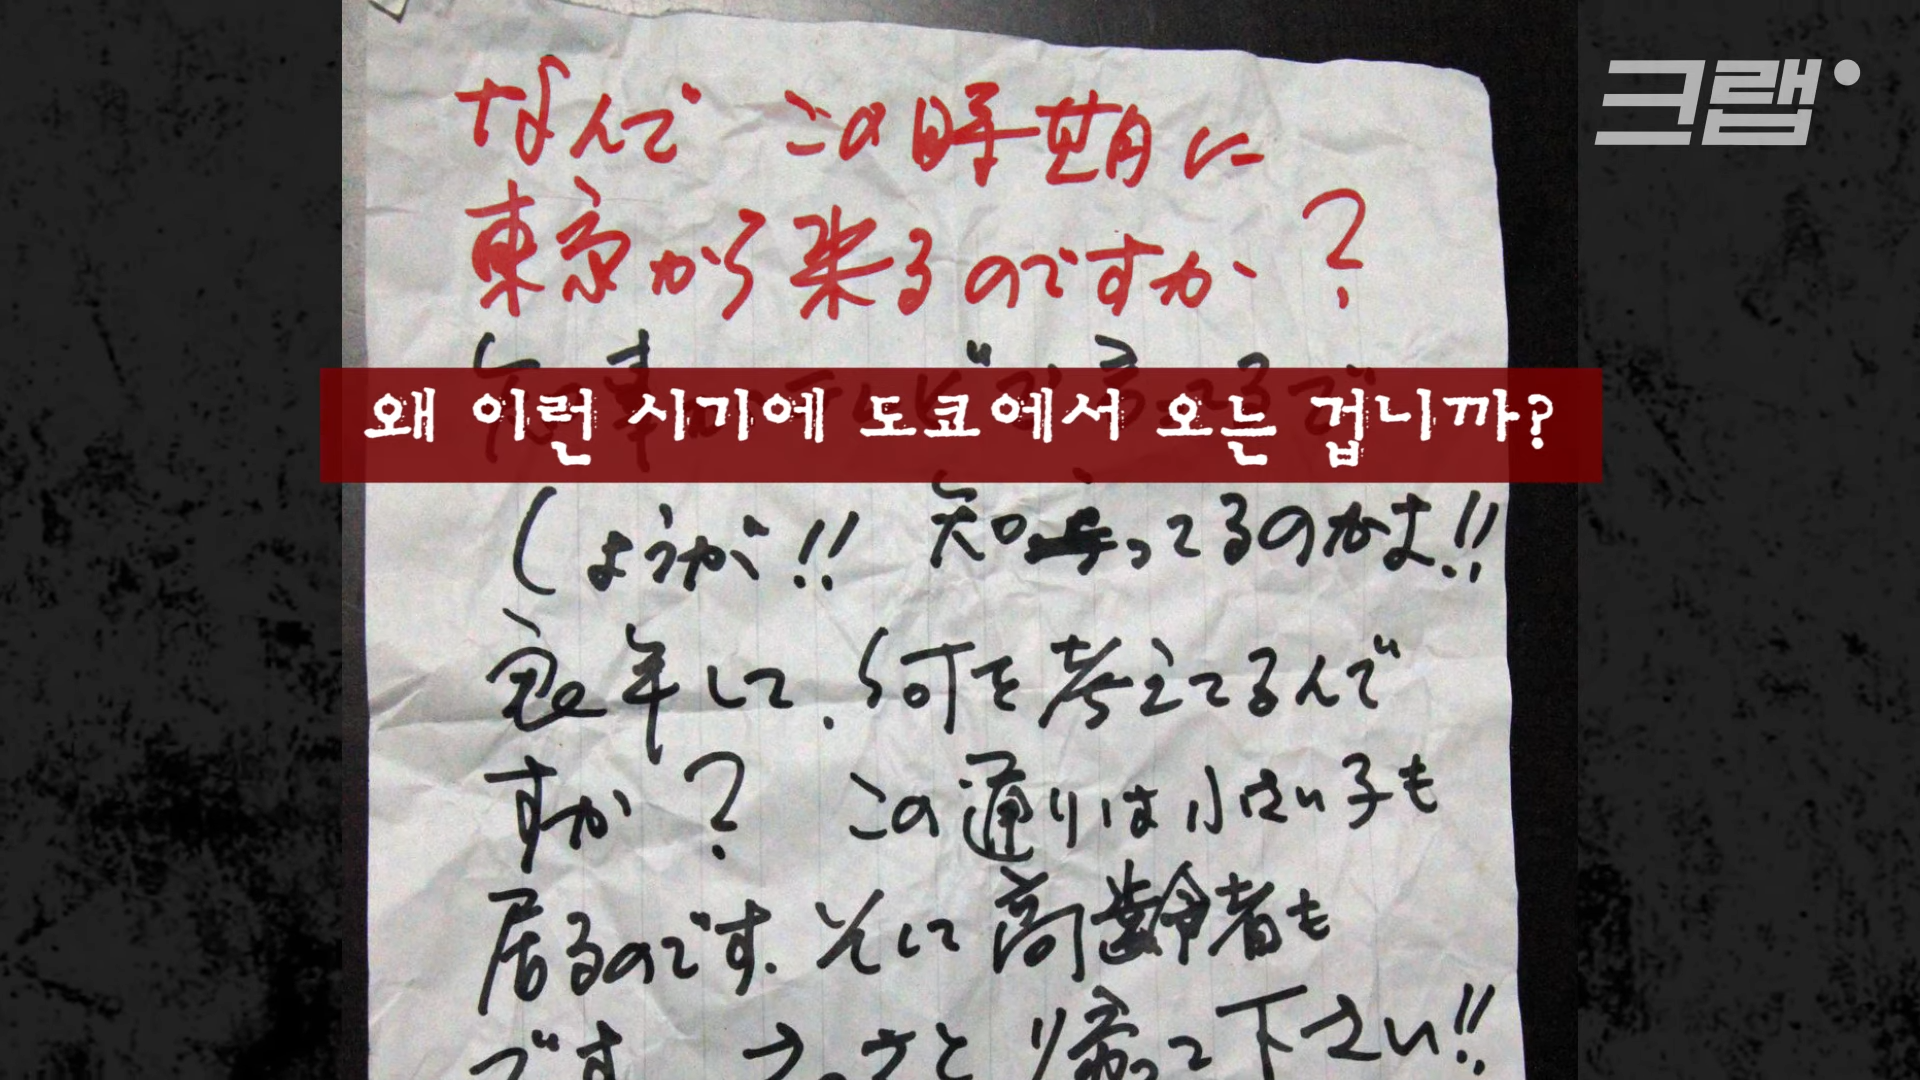 크랩
なんで この時期に
東京から来るのですか？
왜 이런 시기에 도쿄에서 오는 겁니까?
しょうが!! 知ってるのかよ!!
良い年して、何を考えてるんで
すか？ この通りは小さい子も
居るのです、そして高齢者も
です さっさと帰って下さい!!